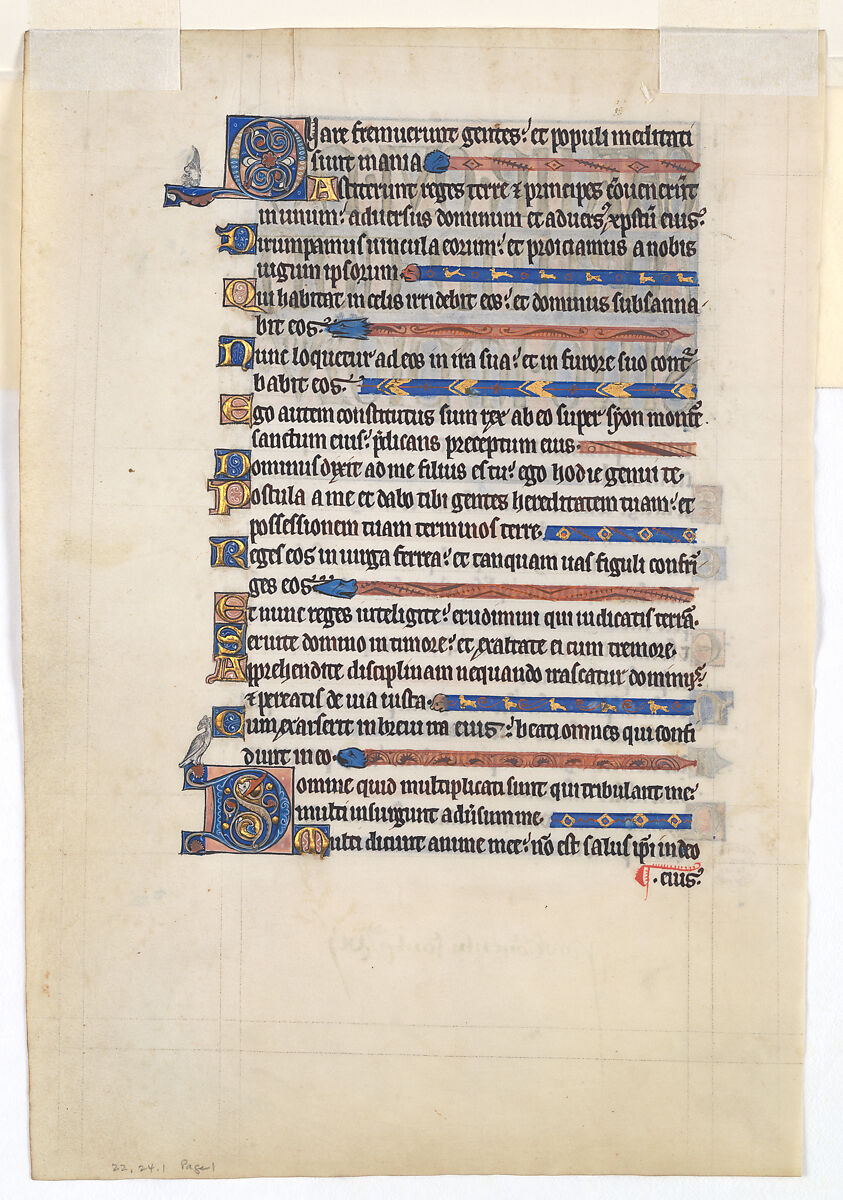 Quare fremuerunt gentes: et populi meditati
sunt inania
Astiterunt reges terre ⁊ principes co̅uenerūt
in unum: aduersus dominum et aduersꝰ xpstū eius:
Dirumpamus uincula eorum: et proiciamus a nobis
iugum ipsorum.
Qui habitat in celis irridebit eos: et dominus subsanna
bit eos:
Nunc loquetur ad eos in ira sua: et in furore suo cont᷑
babit eos:
Ego autem constitutus sum rex ab eo super syon monte̅
sanctum eius: p̄dicans preceptum eius.
Dominus dixit ad me filius es tu: ego hodie genui te.
Postula a me et dabo tibi gentes hereditatem tuam: et
possessionem tuam terminos terre.
Reges eos in uirga ferrea: et tanquam uas figuli confri̅
ges eos:
Et nunc reges intelligite: erudimini qui iudicatis terrā.
Seruite domino in timore: et exultate ei cum tremore.
Apprehendite disciplinam nequando irascatur dominꝰ:
⁊ pereatis de uia iusta.
Cum exarserit in breui ira eius: beati omnes qui confi
dunt in eo.
Domine quid multiplicati sunt qui tribulant me:
multi insurgunt aduͥsum me.
Multi dicunt anime mee: no̅ est salus ip̄i in deo
.eius:
22.24.1 Page 1